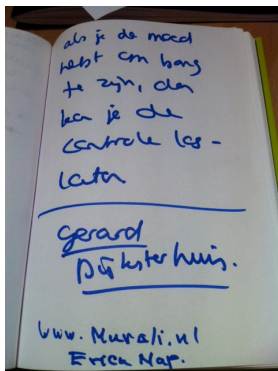 als je de moed
hebt om bang
te zijn, dan
kan je de
controle los -
laten
Gerard
Dijksterhuis.
www.Murali.nl
Erica Nap.